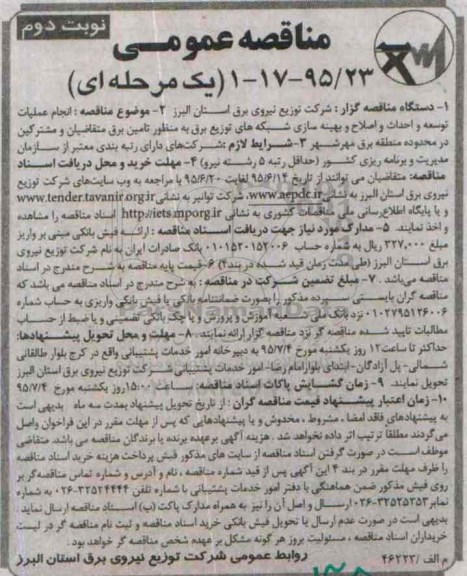 نوبت دوم
مناقصه عمومی
۱-۱۷-۹۵/۲۳ (یک مرحله ای)
۱- دستگاه مناقصه گزار: شرکت توزیع نیروی برق استان البرز ۲- موضوع مناقصه: انجام عملیات
توسعه و احداث و اصلاح و بهینه سازی شبکه های توزیع برق به منظور تامین برق متقاضیان و مشترکین
در محدوده منطقه برق مهرشهر ۳- شرایط لازم: شرکت‌های دارای رتبه بندی معتبر از سازمان
مدیریت و برنامه ریزی کشور (حداقل رتبه ۵ رشته نیرو) ۴- مهلت خرید و محل دریافت اسناد
مناقصه: متقاضیان می توانند از تاریخ ۹۵/۶/۱۴ لغایت ۹۵/۶/۲۰ با مراجعه به وب سایت‌های شرکت توزیع
نیروی برق استان البرز به نشانی www.aepdc.ir، شرکت توانیر به نشانی www.tender.tavanir.org.ir
و یا پایگاه اطلاع‌رسانی ملی مناقصات کشوری به نشانی http://iets.mporg.ir اسناد مناقصه را مشاهده
و اخذ نمایند. ۵- مدارک مورد نیاز جهت دریافت اسناد مناقصه: ارائه فیش بانکی مبنی بر واریز
مبلغ ۳۲۷,۰۰۰ ریال به شماره حساب ۰۱۰۱۵۳۰۱۵۲۰۰۶ بانک صادرات ایران به نام شرکت توزیع نیروی
برق استان البرز (طی مدت زمان قید شده در بند۴) ۶- قیمت پایه مناقصه به شرح مندرج در اسناد
مناقصه می‌باشد. ۷- مبلغ تضمین شرکت در مناقصه: به شرح مندرج در اسناد مناقصه می باشد که
مناقصه گران بایستی سپرده مذکور را بصورت ضمانتنامه بانکی یا فیش بانکی واریزی به حساب شماره
۰۱۰۲۷۹۵۱۲۶۰۰۶ نزد بانک ملی شعبه آموزش و پرورش و یا چک بانکی تضمینی و یا ضبط از حساب
مطالبات تایید شده مناقصه گر نزد مناقصه گزار ارائه نمایند. ۸- مهلت و محل تحویل پیشنهادها:
حداکثر تا ساعت ۱۲ روز یکشنبه مورخ ۹۵/۷/۴ به دبیرخانه امور خدمات پشتیبانی واقع در کرج بلوار طالقانی
شمالی- پل آزادگان- ابتدای بلوار امام رضا- امور خدمات پشتیبانی شرکت توزیع نیروی برق استان البرز
تحویل نمایند. ۹- زمان گشایش پاکات اسناد مناقصه: ساعت ۱۵:۰۰ روز یکشنبه مورخ ۹۵/۷/۴
۱۰- زمان اعتبار پیشنهاد قیمت مناقصه گران: از تاریخ تحویل پیشنهاد بمدت سه ماه بدیهی است
به پیشنهادهای فاقد امضا، مشروط، مخدوش و یا پیشنهادهایی که پس از مهلت مقرر در این فراخوان واصل
می گردند مطلقا ترتیب اثر داده نخواهد شد. هزینه آگهی برعهده برنده یا برندگان مناقصه می باشد. متقاضی
موظف است در صورت گرفتن اسناد مناقصه از سایت های مذکور فیش پرداخت هزینه خرید اسناد مناقصه
را ظرف مهلت مقرر در بند ۴ این آگهی پس از قید شماره مناقصه، نام و آدرس و شماره تماس مناقصه‌گر بر
روی فیش مذکور ضمن هماهنگی با دفتر امور خدمات پشتیبانی با شماره تلفن ۳۲۵۲۴۴۴۴-۰۲۶ به شماره
نمابر ۳۲۵۲۵۳۵۳-۰۲۶ ارسال و اصل آن را نیز به همراه مدارک پاکت (ب) اسناد مناقصه ارسال نماید.
بدیهی است در صورت عدم ارسال یا تحویل فیش بانکی خرید اسناد مناقصه و ثبت نام مناقصه گر در لیست
خریداران اسناد مناقصه، مسئولیت بروز هر گونه مشکل بر عهده شخص مناقصه گر خواهد بود.
م الف/۴۶۲۲۳ روابط عمومی شرکت توزیع نیروی برق استان البرز